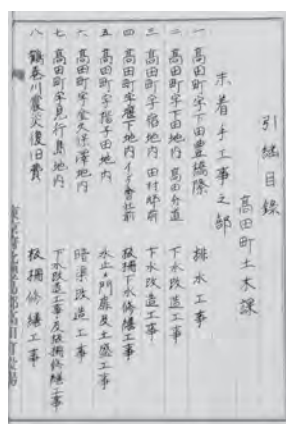 引継目錄
高田町土木課
未着手工事之部
一 高田町字下田豊橋際 排水工事
二 高田町字下田地内 島田牛道 下水改造工事
三 高田町字宿地内 田村邸前 下水改造工事
四 高田町字 下地内 会社前 板柵下水修繕工事
五 高田町字稲子田地内 水止門扉及土盛工事
六 高田町字金久保澤地内 暗渠改造工事
七 高田町字鬼行島地内 下水改造工事及板柵修繕工事
八 鶴巻川震災復旧費 板柵修繕工事
東京府北豊島郡高田町役場